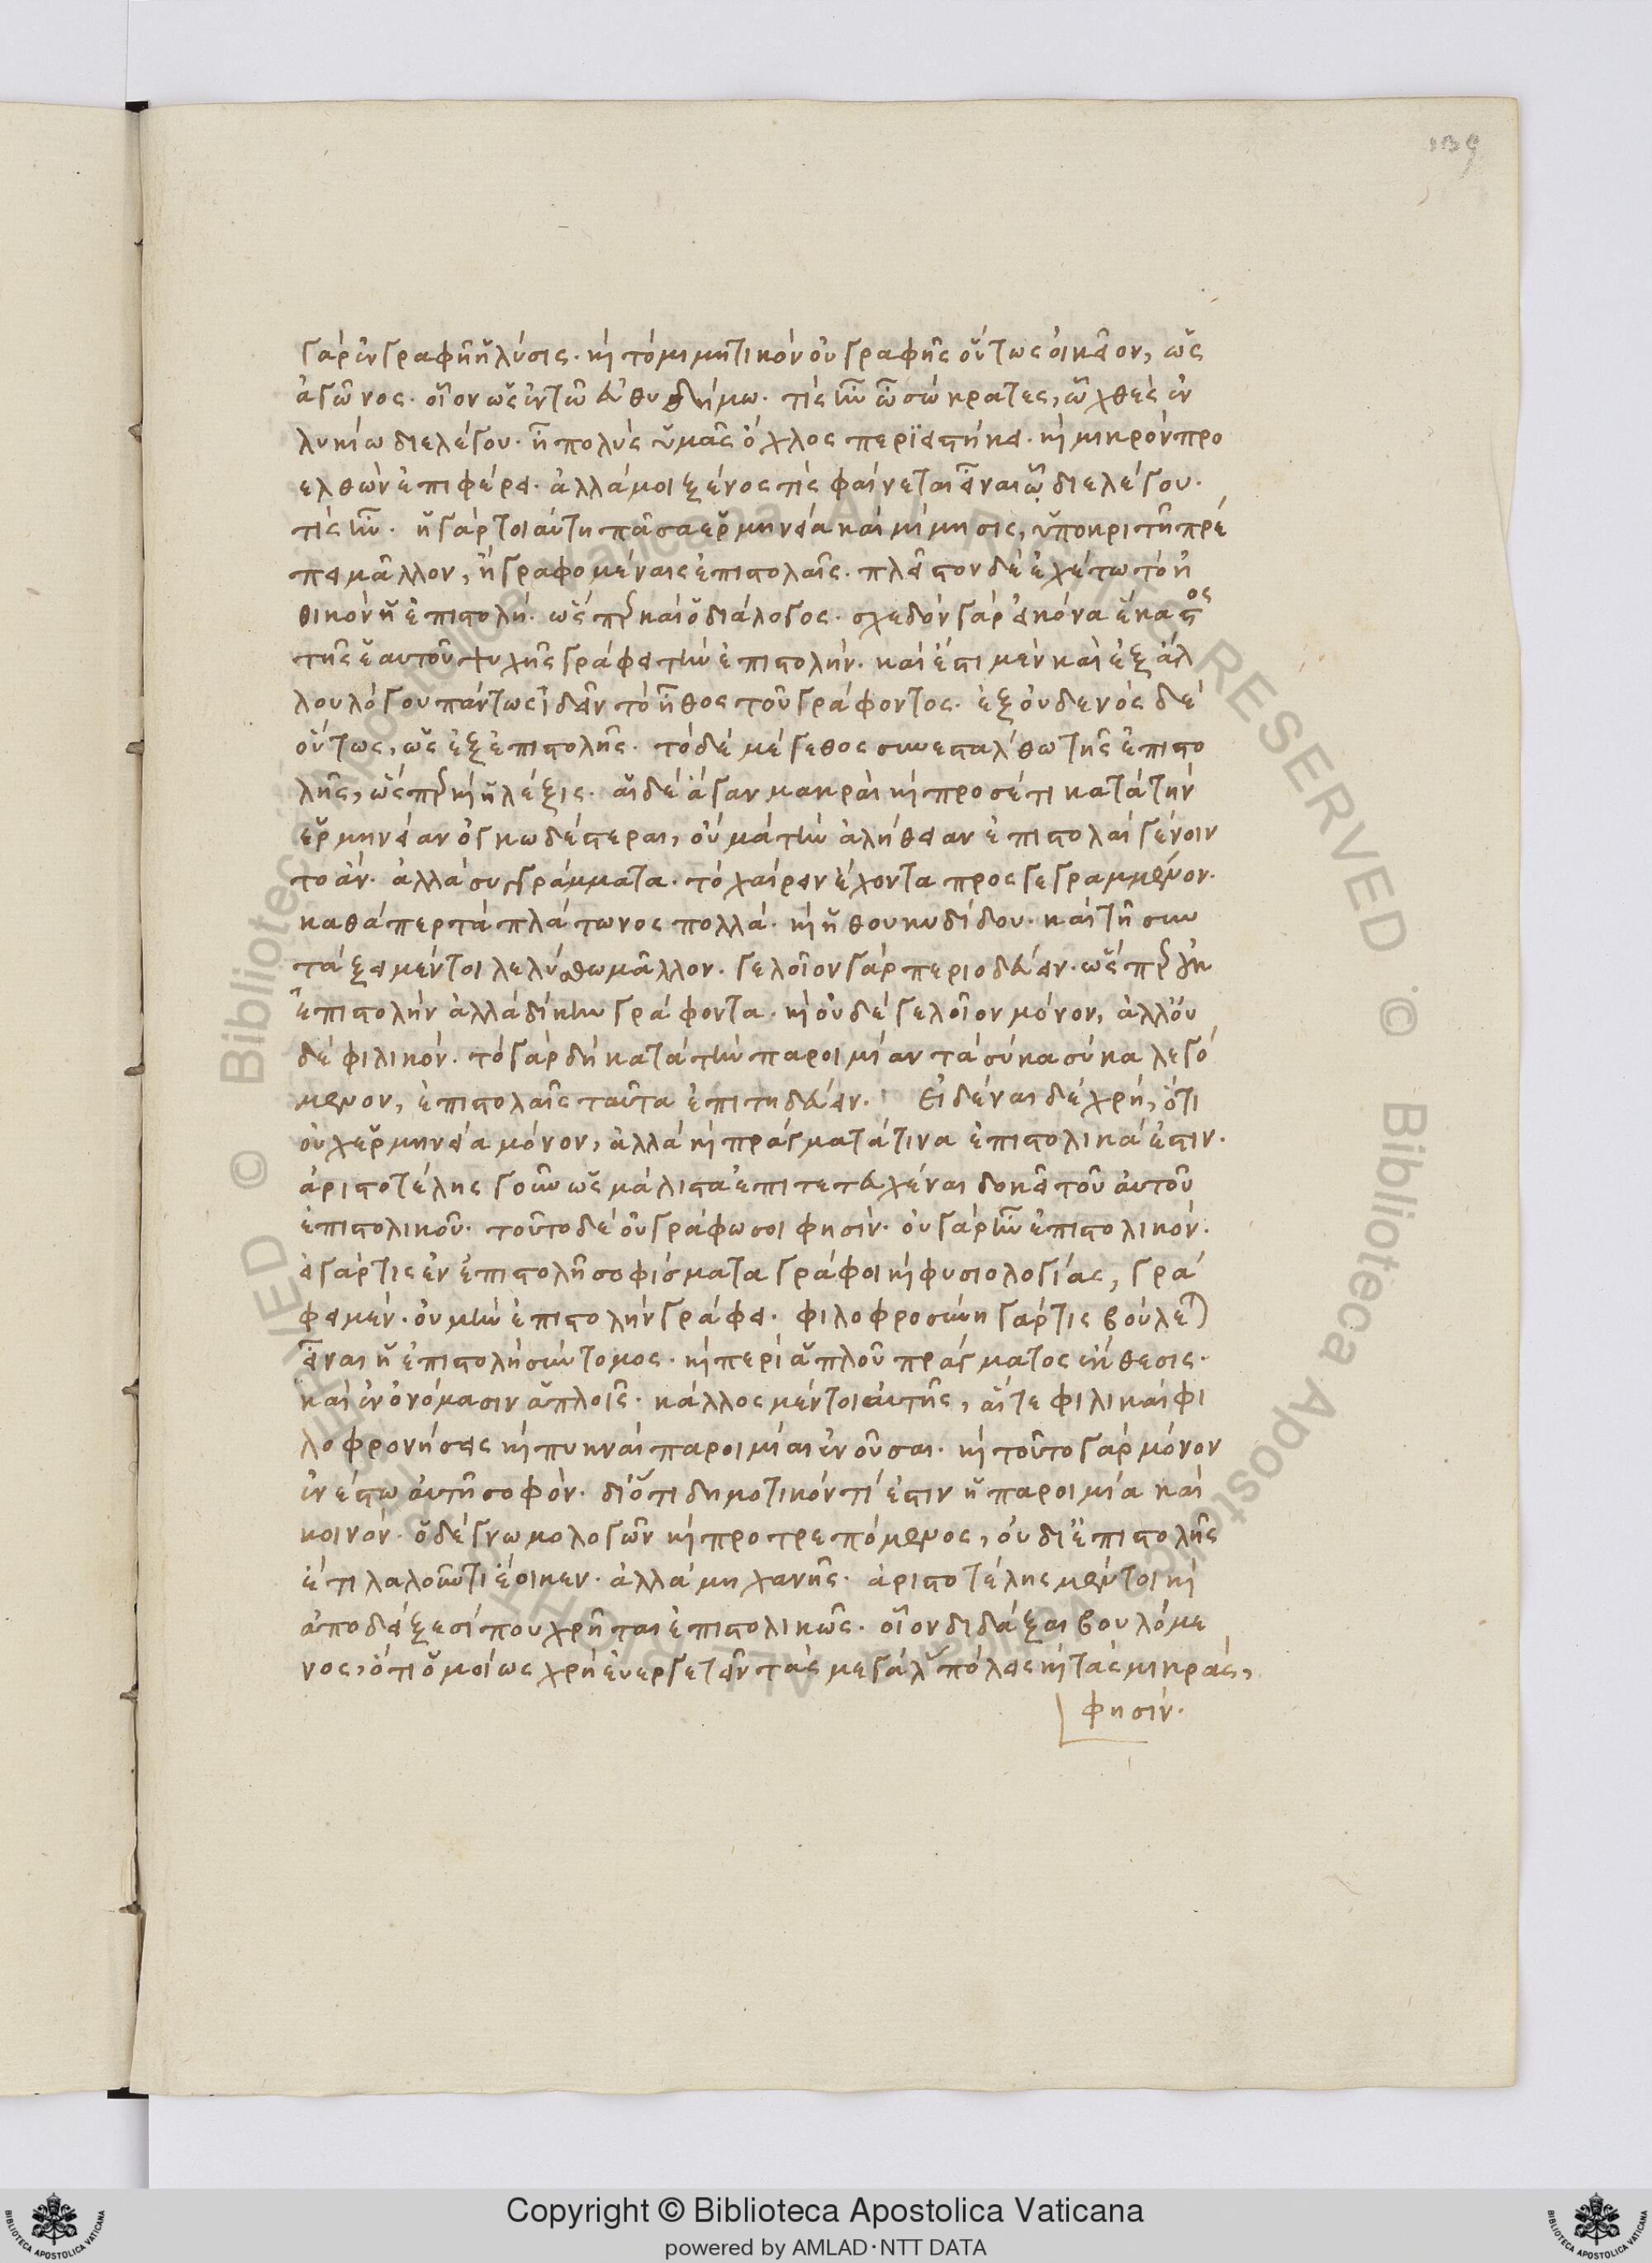 139
γὰρ ἐν γραφῆ ἡ λύσις. καὶ τὸ μιμητικὸν οὐ γραφῆς οὕτως οἰκεῖον, ὡς
ἀγῶνος. οἷον ὡς ἐν τῶ εὐθυδήμω. τίς ἦν ὦ σώκρατες, ὧ χθὲς ἐν
λυκίω διελέγου. ἦ πολὺς ὑμᾶς ὄχλος περϊειστήκει. καὶ μικρὸν προ
ελθὼν ἐπιφέρει. ἀλλά μοι ξένος τίς φαίνεται εἶναι ὧ διελέγου.
τίς ἦν. ἡ γὰρ τοιαύτη πᾶσα ἑρμηνεία καὶ μίμησις, ὑποκριτῆ πρέ
πει μᾶλλον, ἢ γραφομέναις ἐπιστολαῖς. πλεῖστον δὲ ἐχέτω τὸ ἠ
θικὸν ἡ ἐπιστολή. ὥσπερ καὶ ὁ διάλογος. σχεδὸν γὰρ εἰκόνα ἕκαστος
τῆς ἑαυτοῦ ψυχῆς γράφει τὴν ἐπιστολήν. καὶ ἔστι μὲν καὶ ἐξ ἄλ
λου λόγου παντως ἰδεῖν τὸ ἦθος τοῦ γράφοντος. ἐξ οὐδενὸς δὲ
οὕτως, ὡς ἐξ ἐπιστολῆς. τὸ δὲ μέγεθος συνεσταλθω τῆς ἐπιστο
λῆς, ὥσπερ καὶ ἡ λέξις. αἱ δὲ ἄγαν μακραὶ καὶ προσέτι κατὰ τὴν
ἑρμηνείαν ὀγκωδέστεραι, οὐ μὰ τὴν ἀλήθειαν ἐπιστολαὶ γένοιν
το ἄν. ἀλλὰ συγγράμματα. τὸ χαίρειν ἔχοντα προσγεγραμμένον.
καθάπερ τὰ πλάτωνος πολλά. καὶ ἡ θουκυδίδου. καὶ τῆ συν
τάξει μέντοι λελύσθω μᾶλλον. γελοῖον γὰρ περιοδεύειν. ὥσπερ οὐκ
ἐπιστολὴν ἀλλὰ δίκην γράφοντα. καὶ οὐδὲ γελοῖον μόνον, ἀλλ' οὐ
δὲ φιλικόν. τὸ γὰρ δὴ κατὰ τὴν παροιμίαν τὰ σύκα σύκα λεγό
μενον, ἐπιστολαῖς ταῦτα ἐπιτηδεύειν. Εἰδέναι δὲ χρὴ, ὅτι
οὐχ ἑρμηνεία μόνον, ἀλλὰ καὶ πράγματά τινα ἐπιστολικά ἐστιν.
ἀριστοτέλης γοῦν ὡς μάλιστα ἐπιτετευχέναι δοκεῖ τοῦ αὐτοῦ
ἐπιστολικοῦ. τοῦτο δὲ οὐ γράφω σοι φησίν. οὐ γὰρ ἦν ἐπιστολικόν.
εἰ γάρ τις ἐν ἐπιστολῆ σοφίσματα γράφοι καὶ φυσιολογίας, γρά
φει μέν. οὐ μὴν ἐπιστολὴν γράφει. φιλοφροσύνη γάρ τις βούλεται
εἶναι ἡ ἐπιστολὴ σύντομος. καὶ περὶ ἁπλοῦ πράγματος ἔκθεσις.
καὶ ἐν ὀνόμασιν ἁπλοῖς. κάλλος μέντοι αὐτῆς, αἵ τε φιλικαὶ φι
λοφρονήσεις καὶ πυκναὶ παροιμίαι ἐνοῦσαι. καὶ τοῦτο γὰρ μόνον
ἐνέστω αὐτῆ σοφόν. διότι δημοτικόν τί ἐστιν ἡ παροιμία καὶ
κοινόν. ὁ δὲ γνωμολογῶν καὶ προτρεπόμενος, οὐ δι' ἐπιστολῆς
ἔτι λαλοῦντι ἔοικεν. ἀλλὰ μηχανῆς. ἀριστοτέλης μέντοι καὶ
ἀποδείξεσί που χρῆται ἐπιστολικῶς. οἷον διδάξαι βουλόμε
νος, ὅτι ὁμοίως χρὴ εὐεργετεῖν τὰς μεγάλας πόλεις καὶ τὰς μικράς,
φησίν.
Copyright © Biblioteca Apostolica Vaticana
powered by AMLAD·NTT DATA